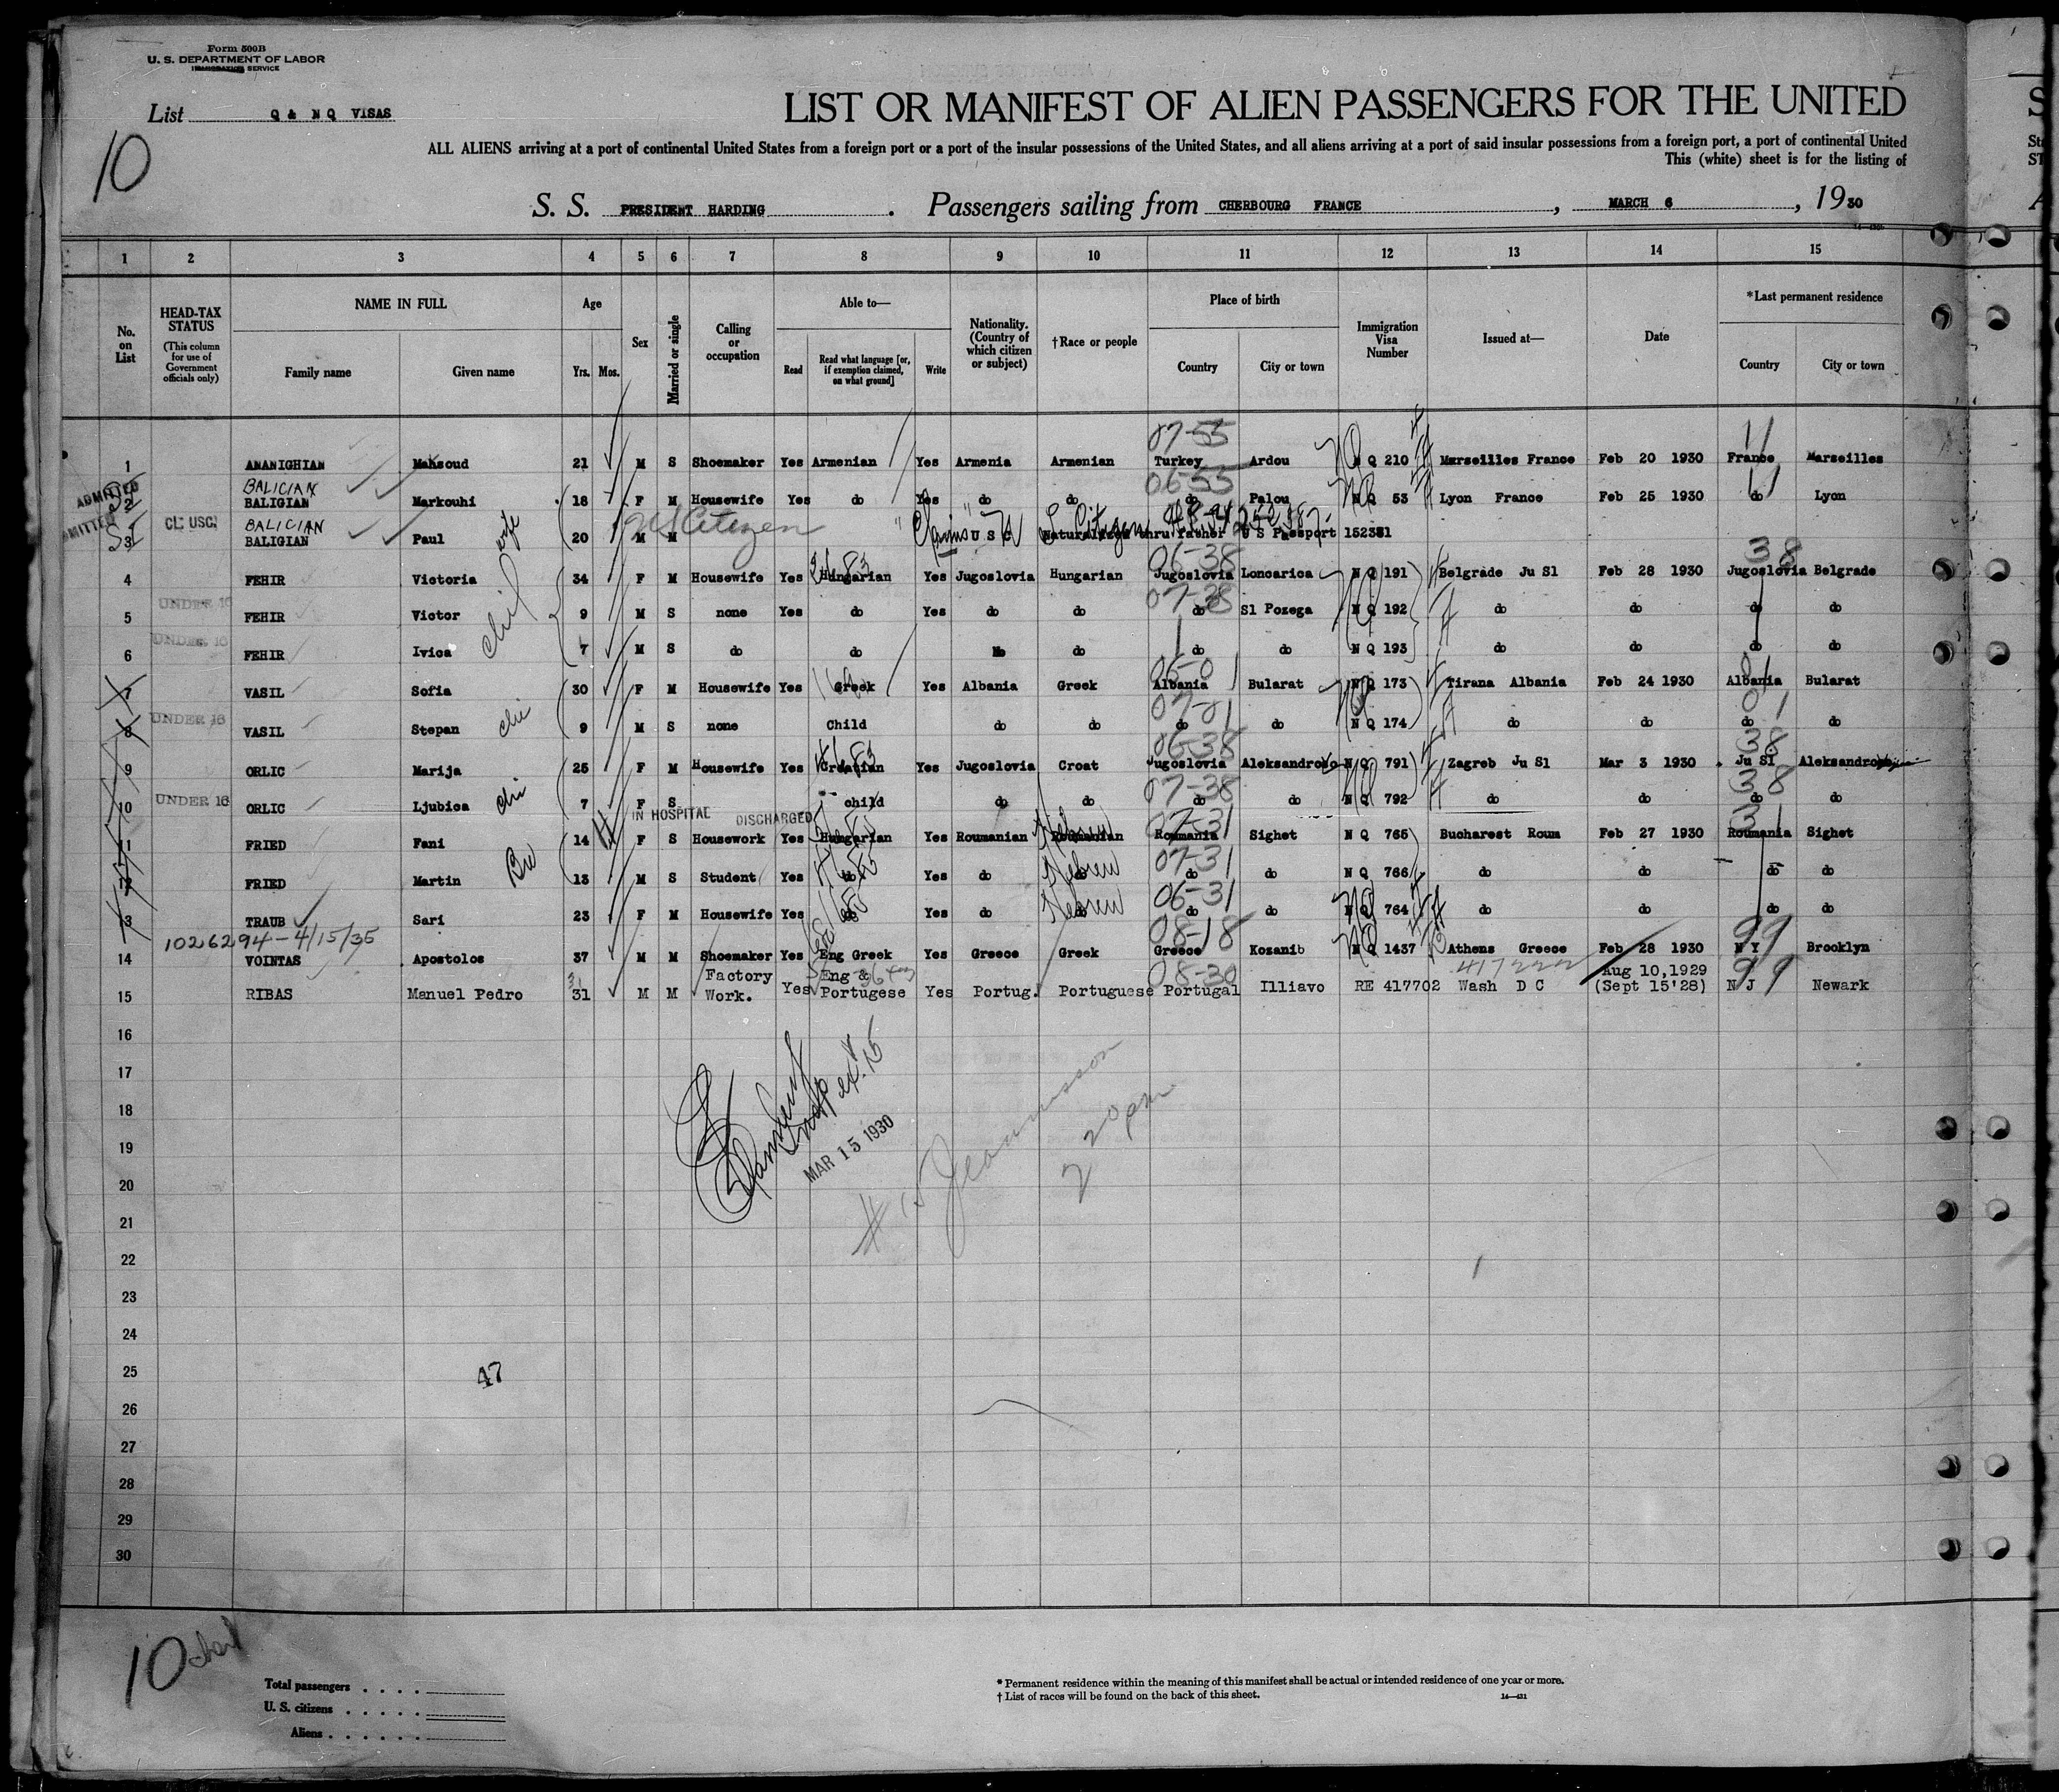 Form 500B
U. S. DEPARTMENT OF LABOR
IMMIGRATION SERVICE
List Q & N Q VISAS
10
LIST OR MANIFEST OF ALIEN PASSENGERS FOR THE UNITED
ALL ALIENS arriving at a port of continental United States from a foreign port or a port of the insular possessions of the United States, and all aliens arriving at a port of said insular possessions from a foreign port, a port of continental United
This (white) sheet is for the listing of
S. S. PRESIDENT HARDING . Passengers sailing from CHERBOURG FRANCE , MARCH 6 , 1930
1 2 3 4 5 6 7 8 9 10 11 12 13 14 15
No. on List
HEAD-TAX STATUS (This column for use of Government officials only)
NAME IN FULL
Family name
Given name
Age
Yrs. Mos.
Sex
Married or single
Calling or occupation
Able to—
Read
Read what language [or, if exemption claimed, on what ground]
Write
Nationality. (Country of which citizen or subject)
†Race or people
Place of birth
Country
City or town
Immigration Visa Number
Issued at—
Date
*Last permanent residence
Country
City or town
07-55 11
1 ANANIGHIAN Maksoud 21 M S Shoemaker Yes Armenian Yes Armenia Armenian Turkey Ardou N Q 210 Marseilles France Feb 20 1930 France Marseilles
ADMITTED BALICIAN 06-55
2 BALIGIAN Markouhi 18 F M Housewife Yes do Yes do do do Palou N Q 53 Lyon France Feb 25 1930 do Lyon
CL: USC. BALICIAN wife US Citizen
3 BALIGIAN Paul 20 M M Claims U S C Naturalized thru father U S Passport 152381
06-38 38
4 FEHIR Victoria 34 F M Housewife Yes Hungarian Yes Jugoslovia Hungarian Jugoslovia Loncarica N Q 191 Belgrade Ju Sl Feb 28 1930 Jugoslovia Belgrade
UNDER 16 07-38
5 FEHIR Victor 9 M S none Yes do Yes do do do Sl Pozega N Q 192 do do do do
UNDER 16
6 FEHIR Ivica 7 M S do do do do do N Q 193 do do do do
06-01 01
7 VASIL Sofia 30 F M Housewife Yes Greek Yes Albania Greek Albania Bularat N Q 173 Tirana Albania Feb 24 1930 Albania Bularat
UNDER 16 07-01 01
8 VASIL Stepan 9 M S none Child do do do do N Q 174 do do do do
06-38 38
9 ORLIC Marija 25 F M Housewife Yes Croatian Yes Jugoslovia Croat Jugoslovia Aleksandrovo N Q 791 Zagreb Ju Sl Mar 3 1930 Ju Sl Aleksandrovo
UNDER 16 07-38 38
10 ORLIC Ljubica 7 F S child do do do do N Q 792 do do do do
IN HOSPITAL DISCHARGED Hebrew 07-31 31
11 FRIED Fani 14 F S Housework Yes Hungarian Yes Roumanian Roumanian Roumania Sighet N Q 765 Bucharest Roum Feb 27 1930 Roumania Sighet
Hebrew 07-31
12 FRIED Martin 13 M S Student Yes do Yes do do do do N Q 766 do do do do
Hebrew 06-31
13 TRAUB Sari 23 F M Housewife Yes do Yes do do do do N Q 764 do do do do
1026294-4/15/35 08-18 99
14 VOINTAS Apostolos 37 M M Shoemaker Yes Eng Greek Yes Greece Greek Greece Kozanib N Q 1437 Athens Greece Feb 28 1930 N Y Brooklyn
08-30 417222 99
15 RIBAS Manuel Pedro 31 M M Factory Work. Yes Eng & Portugese Yes Portug. Portuguese Portugal Illiavo RE 417702 Wash D C Aug 10,1929 (Sept 15'28) N J Newark
16
17
18
MAR 15 1930
2 20 pm
19
20
21
22
23
24
25
47
26
27
28
29
30
10
Total passengers
U. S. citizens
Aliens
* Permanent residence within the meaning of this manifest shall be actual or intended residence of one year or more.
† List of races will be found on the back of this sheet.
14—431